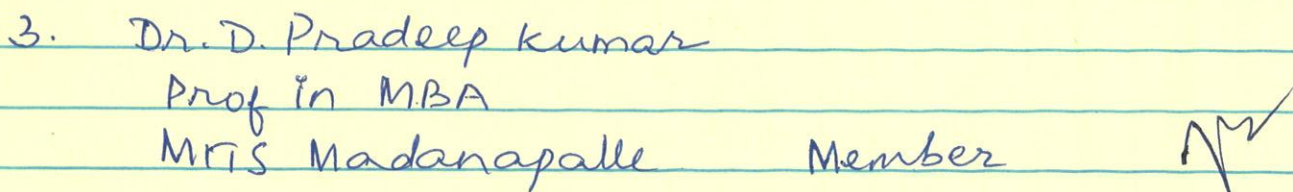 3. Dr. D. Pradeep Kumar
Prof in MBA
MITS Madanapalle Member